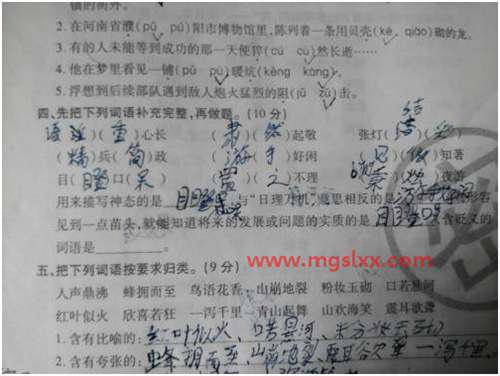 2.在河南省濮(pǔ pú)阳市博物馆里,陈列着一条用贝壳(ké, qiào)砌的龙。
3.有的人未能等到成功的那一天便猝(cù cuì)然长逝……
4.他在梦里看见一铺(pū pù)暖炕(kèng kàng)。
5.浮想到后续部队遇到敌人炮火猛烈的阻(jū zǔ)击。
四.先把下列词语补充完整,再做题。(10分)
语(重)心长 (肃)(然)起敬 张灯(结)(彩)
(精)兵(简)政 (游)(手)好闲 (见)(微)知著
目(瞪)口(呆) (置)(之)不理 (夜)游
用来描写神态的是 目瞪 与“日理万机”意思相反的是 游手好闲 形容
见到一点苗头,就能知道将来的发展或问题的实质的是 目瞪口 含贬义的
词语是
五.把下列词语按要求归类。(9分)
人声鼎沸 蜂拥而至 鸟语花香 山崩地裂 粉妆玉砌 口若悬河
红叶似火 欣喜若狂 一泻千里 青山起舞 山欢海笑 震耳欲聋
1.含有比喻的: 红叶似火、口若悬河、
2.含有夸张的: 蜂拥而至、山崩地裂、震耳欲聋 一泻千里、
www.mgslxx.com